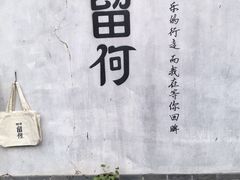 留何
乐的行走 而我在等你回眸
留何